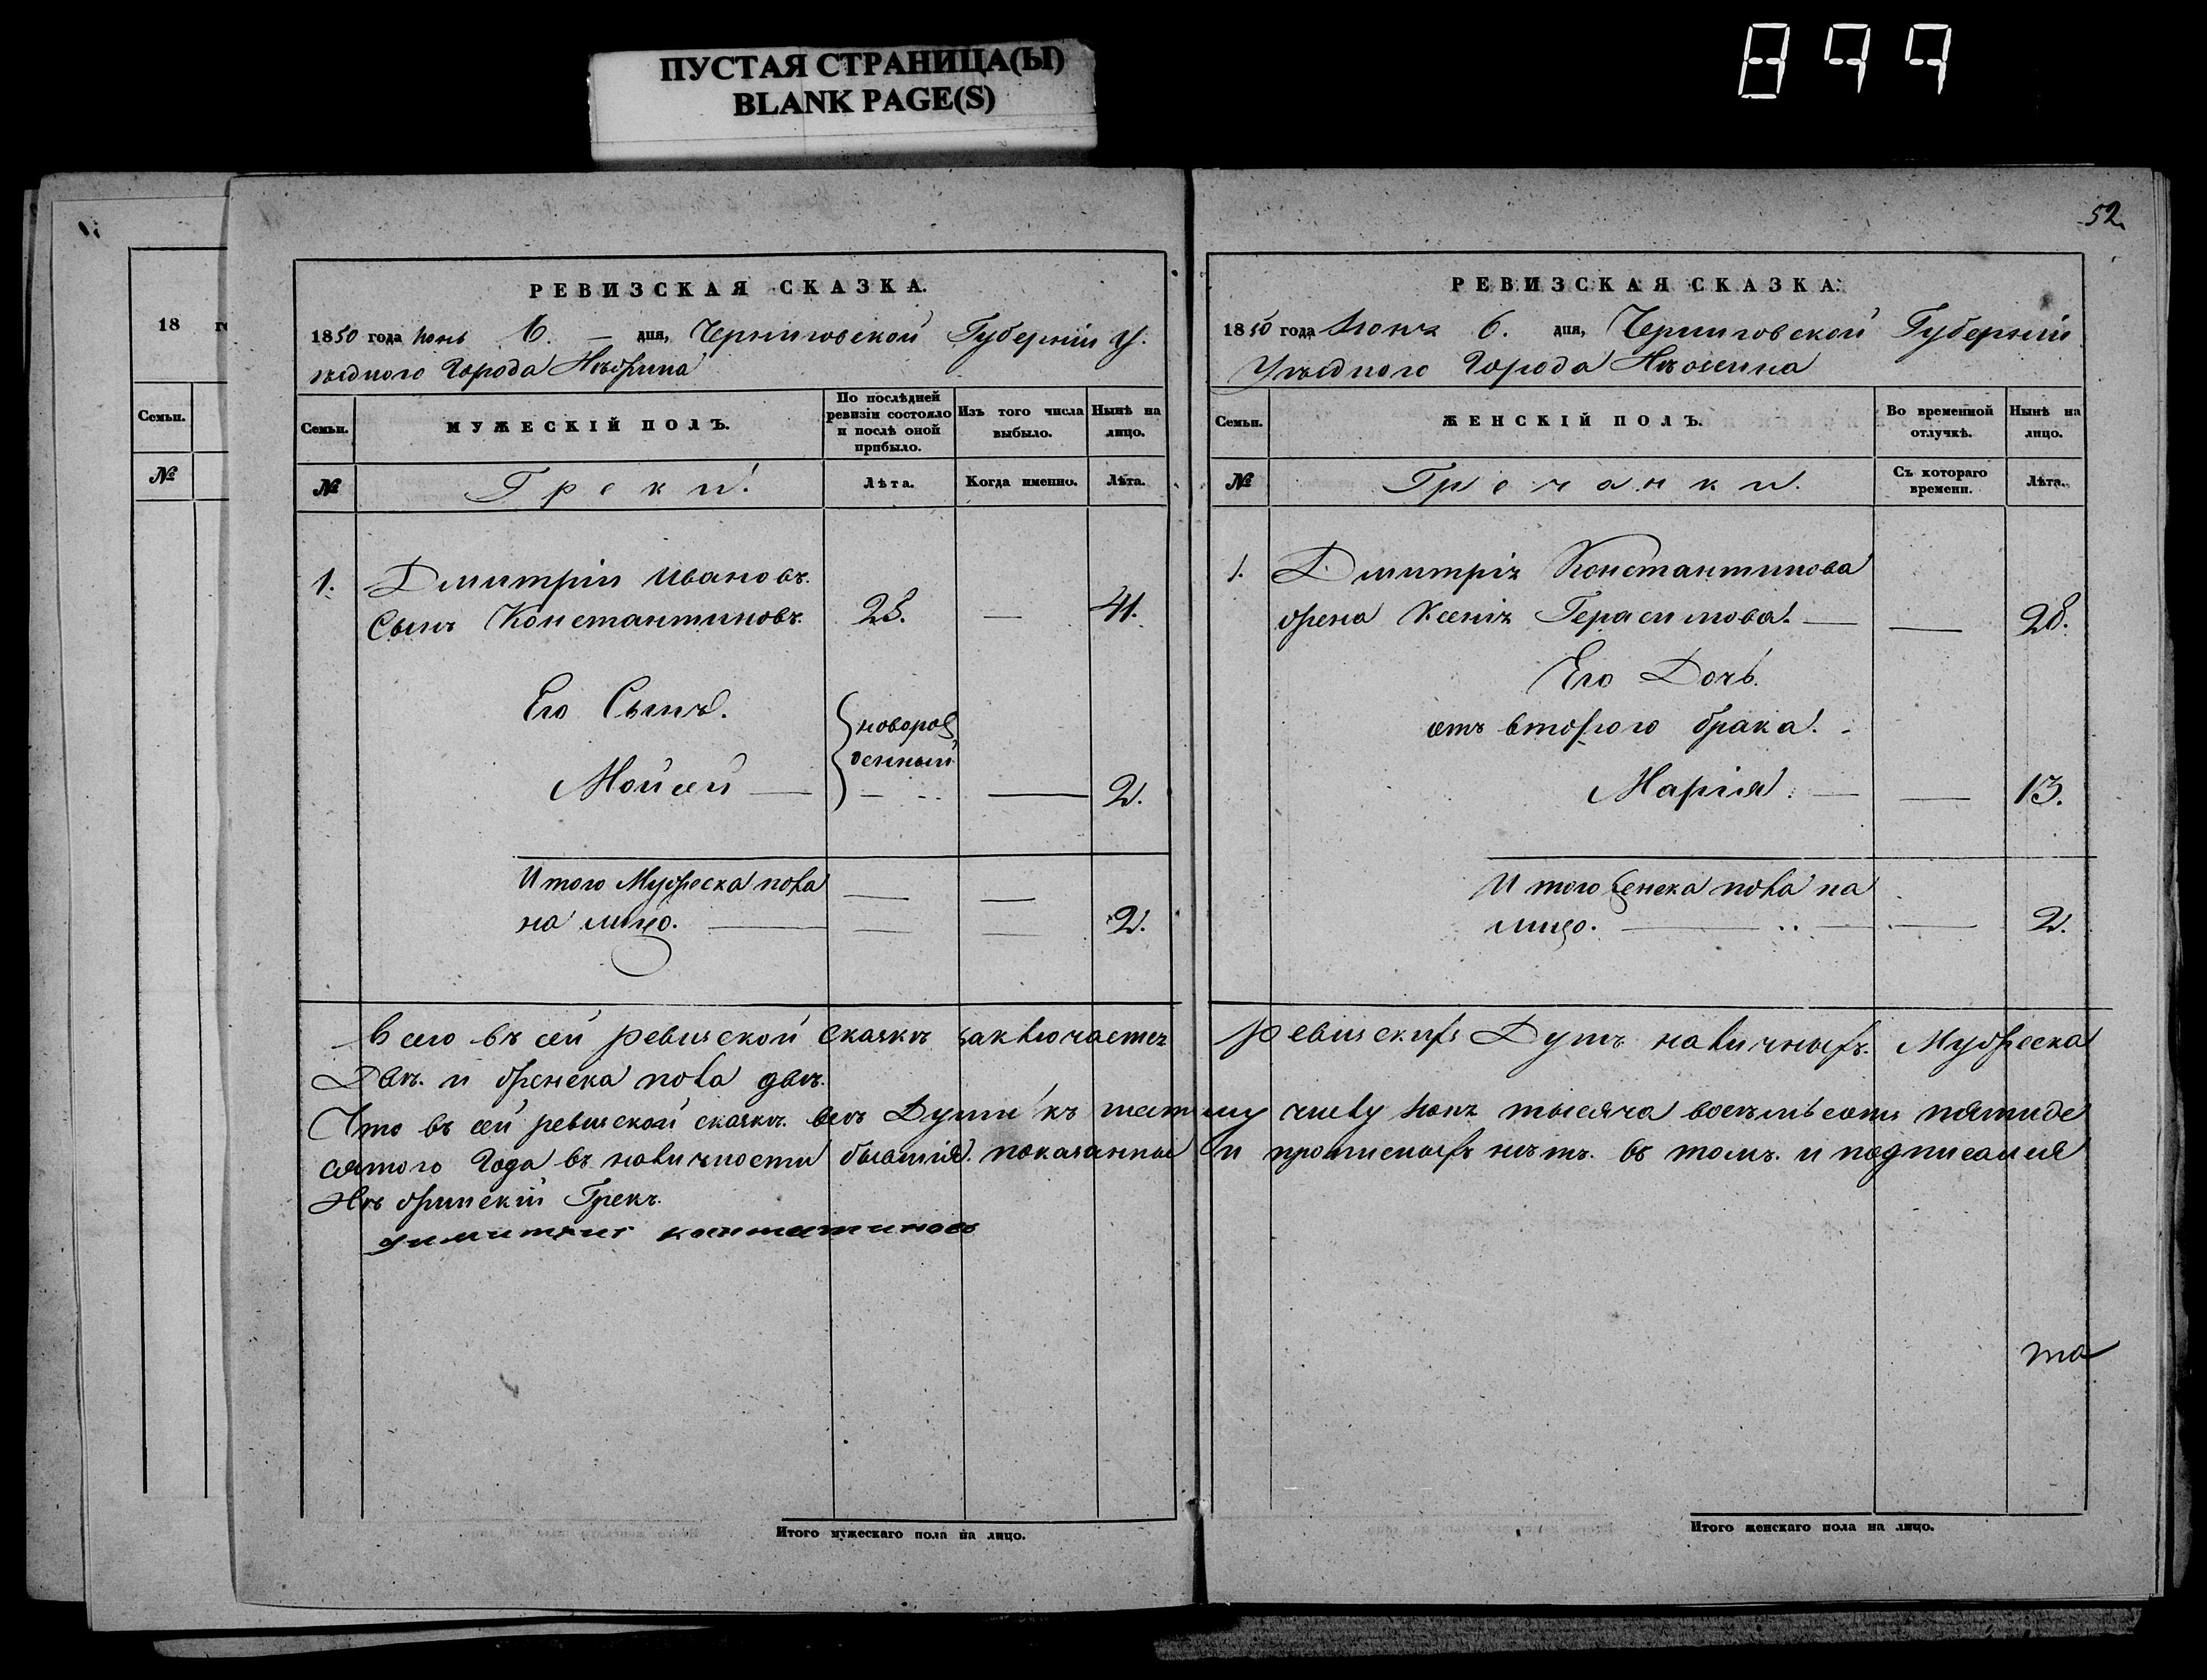 ПУСТАЯ СТРАНИЦА(Ы)
BLANK PAGE(S)
899
18 го
Семьи.
№
РЕВИЗСКАЯ СКАЗКА.
1850 года Июня 6. — дня, Черниговской Губерніи У.
ѣзднаго Города Нѣжина
Семьи.
МУЖЕСКІЙ ПОЛЪ.
По послѣдней ревизіи состояло и послѣ оной прибыло.
Изъ того числа выбыло.
Нынѣ на лицо.
№
Греки.
Лѣта.
Когда именно.
Лѣта.
1. Дмитрій Ивановъ.
Сынъ Константиновъ. 23. — 41.
Его Сынъ.
новорож
денный
Мойсей — — 2.
Итого Мужеска пола — —
на лицо. — — — 2.
Всего въ сей ревизской сказкѣ заключается
Двѣ. и женска пола двѣ.
Что въ сей ревизской сказкѣ. всѣ Души къ шест
сятого Года въ наличности бывшія. показанные
Нѣжинскій Грекъ.
52.
РЕВИЗСКАЯ СКАЗКА.
1850 года Июня 6. дня, Черниговской Губерніи
Уѣзднаго Города Нѣжина
Семьи.
ЖЕНСКІЙ ПОЛЪ.
Во временной отлучкѣ.
Нынѣ на лицо.
№
Гречанки.
Съ котораго времени.
Лѣта.
1. Дмитрія Константинова
жена Ксенія Герасимова. — — 28.
Его Дочь.
отъ второго брака.
Марія. — — 13.
Итого женска пола на
лицо. — — — 2.
ревизскихъ Душъ наличныхъ. Мужеска
му числу Июня тысяча восемьсотъ пятиде
и прописныхъ нѣтъ. въ томъ. и подписался
та
Итого мужескаго пола на лицо.
Итого женскаго пола на лицо.